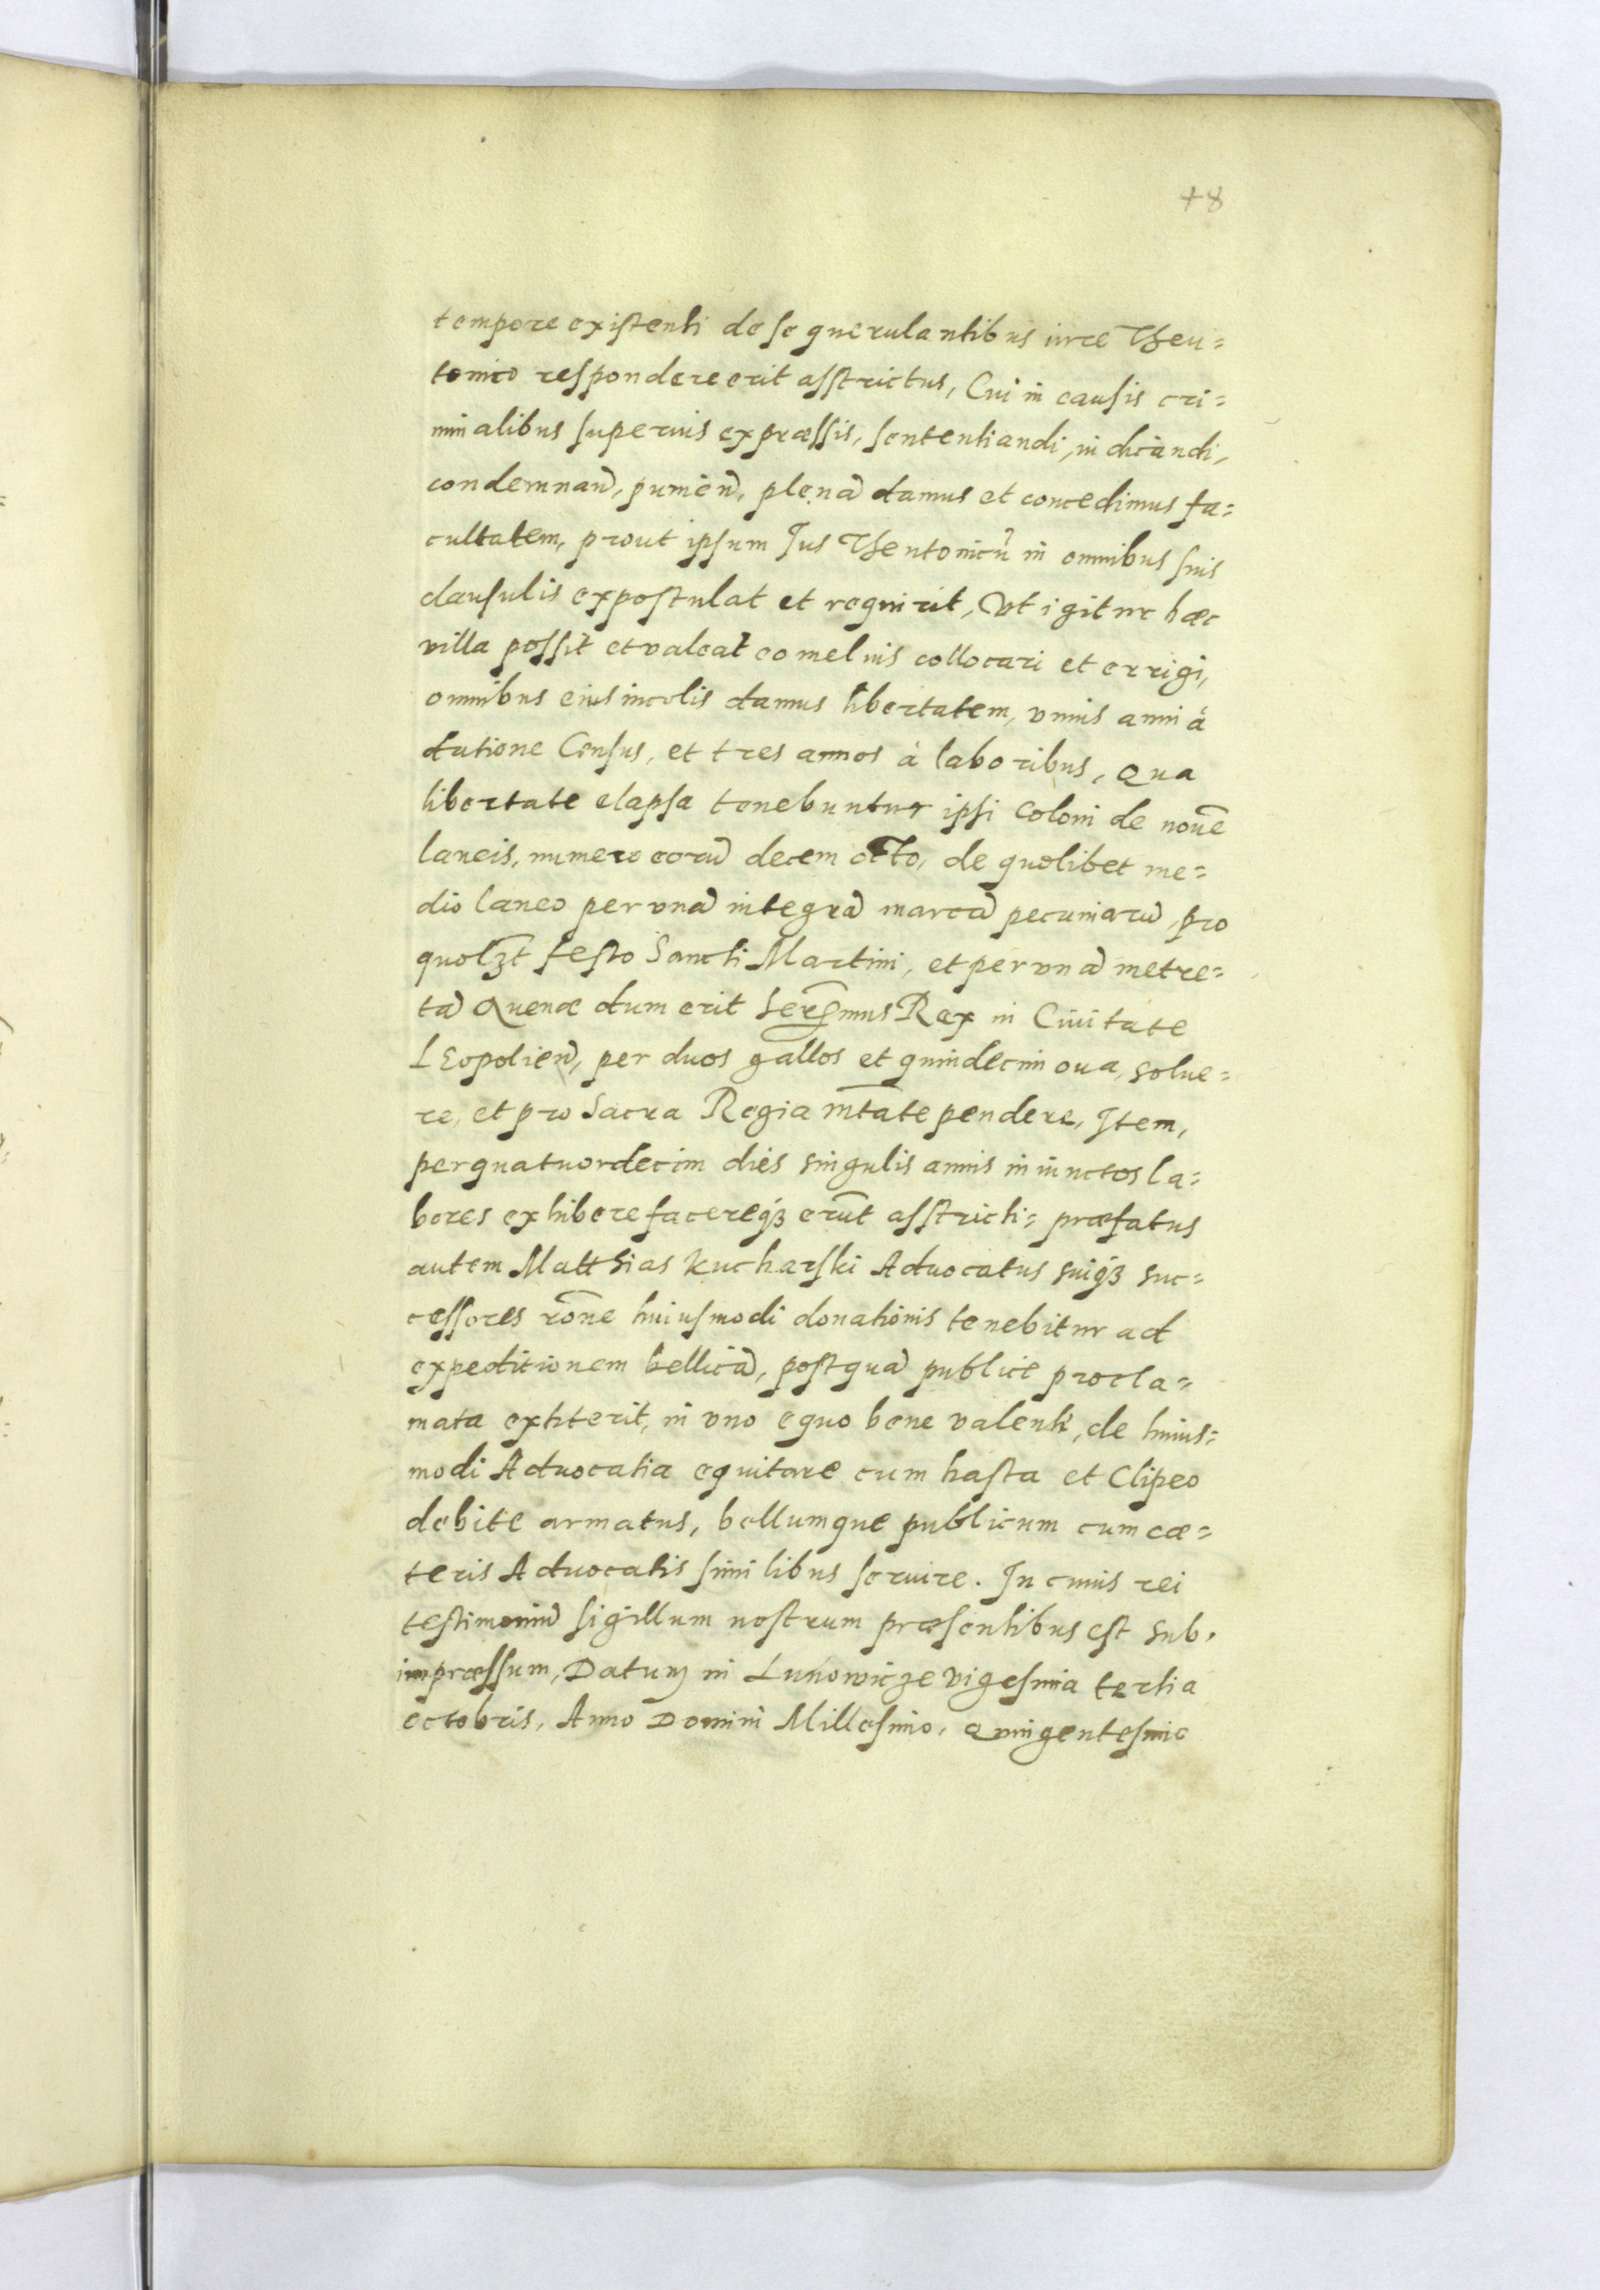 48
tempore existenti de se querulantibus iure Theu=
tonico respondere erit asstrictus, Cui in causis cri=
minalibus superius expræssis, sententiandi, iudicandi,
condemnañd, punieñd, plenã damus et concedimus fa=
cultatem, prout ipsum Jus Theutonicũ in omnibus suis
clausulis expostulat et requirit, Vt igitur hæc
villa possit et valeat eo melius collocari et errigi,
omnibus eius incolis damus libertatem, vnius anni á
datione Census, et tres annos à laboribus, Qua
libertate elapsa tenebuntur ipsi Coloni de nouẽ
laneis, numero eorũ decem octo, de quolibet me=
dio laneo per vnã integrã marcã pecuniarũ, pro
quolꝫt festo Sancti Martini, et per vnã metre=
tã Auenæ dum erit Serẽmus Rex in Ciuitate
LEopolieñ, per duos gallos et quindecim oua, solue=
re, et pro Sacra Regia mtãte pendere, Item,
per quatuordecim diés singulis annis iniunctos la=
bores exhibere facereqꝫ erũt asstricti= præfatus
autem Matthias Kucharski Aduocatus suiqꝫ suc=
cessores rõne huiusmodi donationis tenebitur ad
expeditionem bellicã, postquã publice procla=
mata extiterit, in vno equo bene valenti, de huius=
modi Aduocatia equitare cum hasta et Clipeo
debite armatus, bellumque publicum cum cæ=
teris Aduocatis similibus seruire. In cuius rei
testimoniũ sigillum nostrum præsentibus est sub.
impræssum, Datum in Lunowicze vigesima tertia
octobris, Anno Domini Millesimo, Quingentesimo